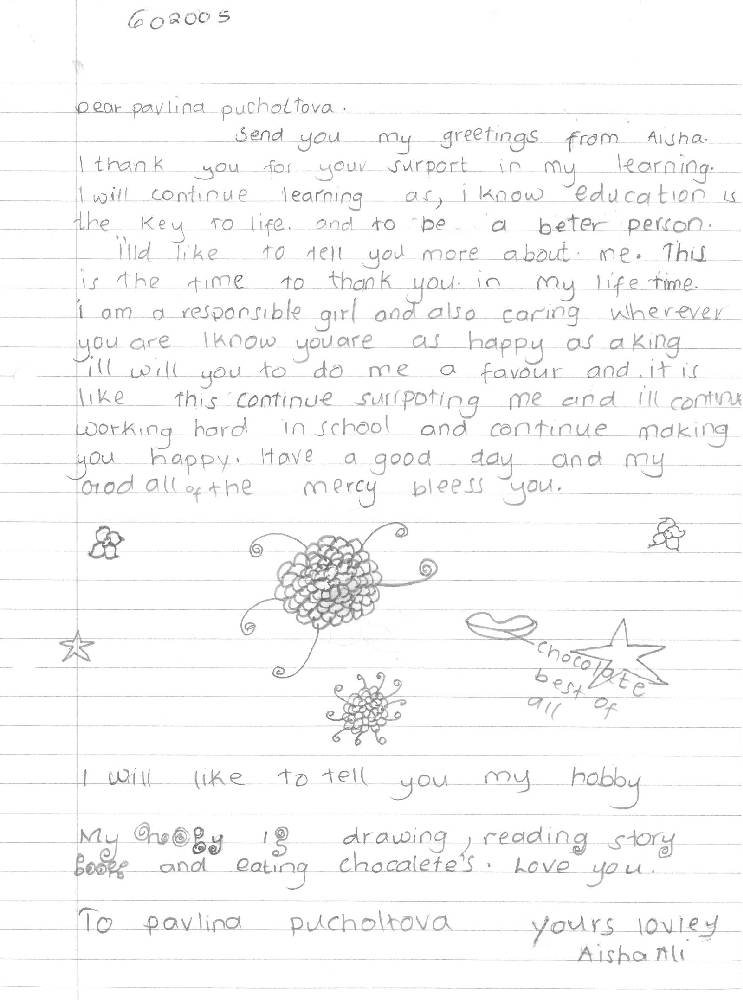 602005
Dear pavlina pucholtova.
Send you my greetings from Aisha.
I thank you for your surport in my learning.
I will continue learning as, i know education is
the key to life. and to be a beter person.
i'lld like to tell you more about me. This
is the time to thank you in my life time.
i am a responsible girl and also caring wherever
you are I know you are as happy as a king
ill will you to do me a favour and it is
like this continue surrpoting me and ill continue
working hard in school and continue making
you happy. Have a good day and my
God all of the mercy bleess you.
chocolate
best of
all
I will like to tell you my hobby
My hobby is drawing, reading story
books and eating chocalete's. Love you.
To pavlina pucholtova yours lovley
Aisha Ali